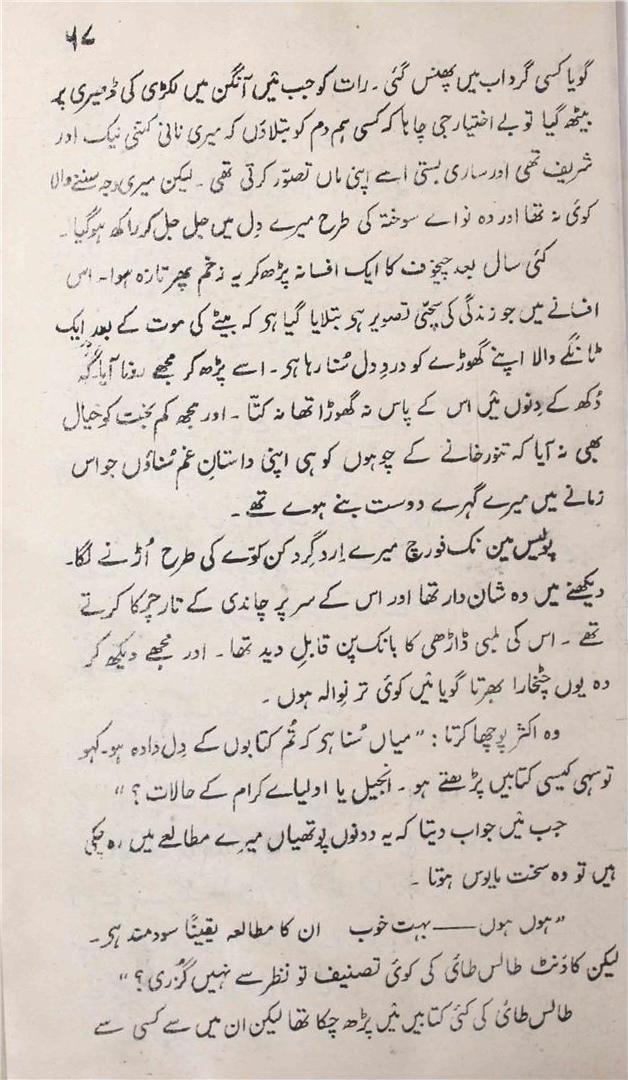 ۶۸
گویا کسی گرداب میں پھنس گئی ۔ رات کو جب مَیں آنگن میں لکڑی کی ڈھیری پر
بیٹھ گیا تو بے اختیار جی چاہا کہ کسی ہم دم کو بتلاؤں کہ میری نانی کتنی نیک اور
شریف تھی اور ساری بستی اسے اپنی ماں تصوّر کرتی تھی ۔ لیکن میری وجہ سننے والا
کوئی نہ تھا اور وہ نواے سوختہ کی طرح میرے دِل میں جل جل کر راکھ ہوگیا ۔
کئی سال بعد چیخوف کا ایک افسانہ پڑھ کر یہ زخم پھر تازہ ہوا ۔ اس
افسانے میں جو زندگی کی سچّی تصویر ہی بتلایا گیا ہی کہ بیٹے کی موت کے بعد ایک
ٹانگے والا اپنے گھوڑے کو دردِ دل سُنا رہا ہی ۔ اسے پڑھ کر مجھے رونا آیا کہ
دُکھ کے دِنوں مَیں اس کے پاس نہ گھوڑا تھا نہ کتّا ۔ اور مجھ کم بخت کو خیال
بھی نہ آیا کہ تنور خانے کے چوہوں کو ہی اپنی داستانِ غم سُناؤں جو اس
زمانے میں میرے گہرے دوست بنے ہوے تھے ۔
پولیس مین نک فورچ میرے اِرد گِرد کن کوّے کی طرح اُڑنے لگا ۔
دیکھنے میں وہ شان دار تھا اور اس کے سر پر چاندی کے تار چمکا کرتے
تھے ۔ اس کی لمبی ڈاڑھی کا بانک پن قابلِ دید تھا ۔ اور مجھے دیکھ کر
وہ یوں چٹخارا بھرتا گویا مَیں کوئی تر نوالہ ہوں ۔
وہ اکثر پوچھا کرتا : "میاں سُنا ہی کہ تُم کتابوں کے دِل دادہ ہو ۔ کہو
تو سہی کیسی کتابیں پڑھتے ہو ۔ انجیل یا اولیاے کرام کے حالات ؟"
جب مَیں جواب دیتا کہ یہ دونوں پوتھیاں میرے مطالعے میں رہ چکی
ہیں تو وہ سخت مایوس ہوتا ۔
"ہوں ہوں —— بہت خوب ان کا مطالعہ یقینًا سودمند ہی ۔
لیکن کاؤنٹ طالس طائی کی کوئی تصنیف تو نظر سے نہیں گُزری ؟"
طالس طائی کی کئی کتابیں مَیں پڑھ چکا تھا لیکن ان میں سے کسی سے